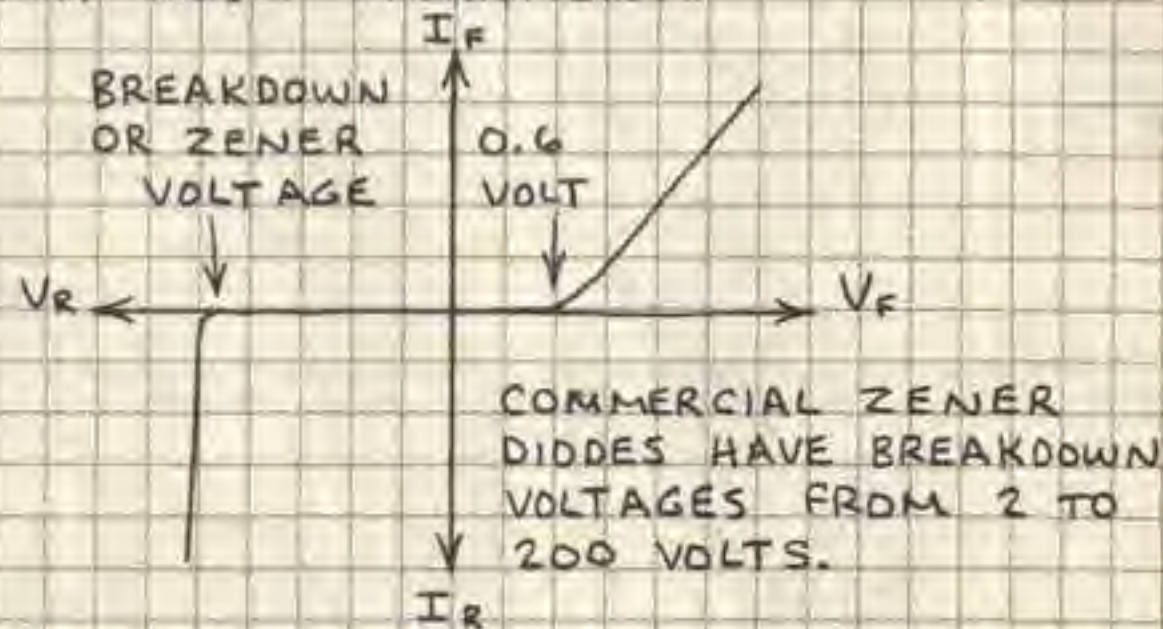 IF
BREAKDOWN
OR ZENER
VOLTAGE
0.6
VOLT
VR
VF
COMMERCIAL ZENER
DIODES HAVE BREAKDOWN
VOLTAGES FROM 2 TO
200 VOLTS.
IR